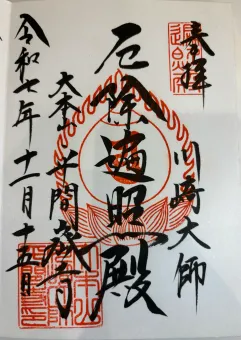 奉拝
川崎大師
厄除遍照殿
大本山平間寺
令和七年十一月十五日